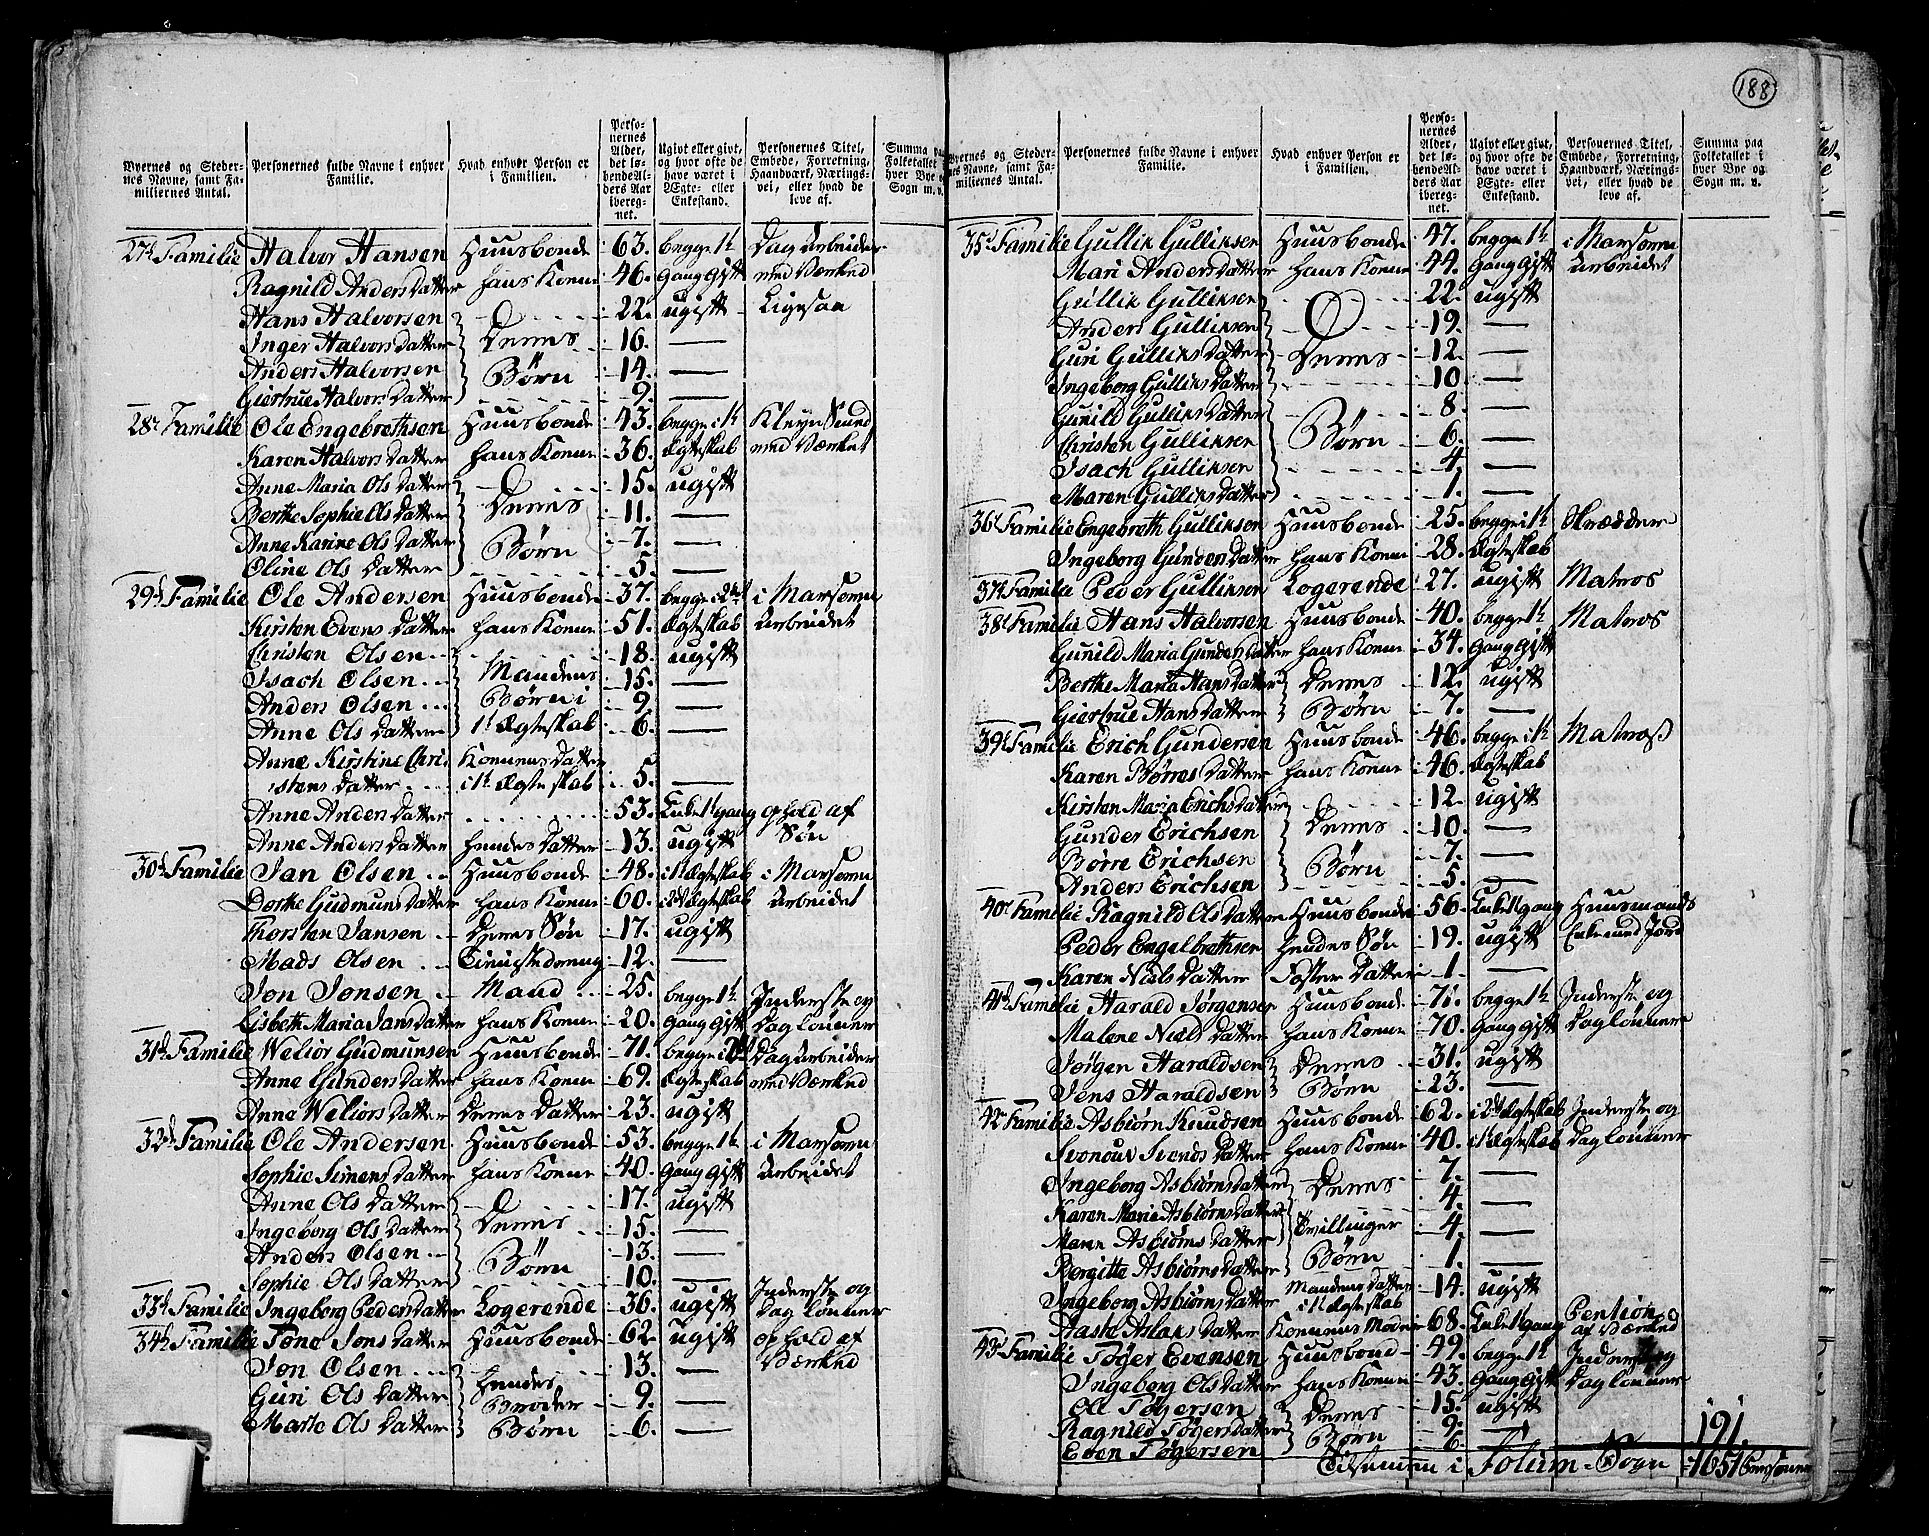 188
Byernes og Stedernes Navne, samt Familiernes Antal.
Personernes fulde Navne i enhver Familie.
Hvad enhver Person er i Familien.
Personernes Alder, det løbende Alders Aar iberegnet.
Ugivt eller givt, og hvor ofte de have været i Ægte- eller Enkestand.
Personernes Titel, Embede, Forretning, Haandværk, Næringsvei, eller hvad de leve af.
Summa paa Folketallet i hver Bye og Sogn m. v.
27de Familie Halvor Hansen Huusbonde 63. begge 1te Dag Arbeider
Ragnild Anders Datter hans Konne 46. Gang Gift ved Værked
Hans Halvorsen 22. ugift Ligesaa
Inger Halvors Datter Deres 16. —
Anders Halvorsen Børn 14. —
Giertrue Halvors Datter 9. —
28de Familie Ole Engebrethsen Huusbonde 43. begge i 1te Kleyn Smed
Karen Halvors Datter hans Konne 36. Ægteskab ved Værket
Anne Maria Ols Datter 15. ugift
Berthe Sophie Ols Datter Deres 11. —
Anne Karine Ols Datter Børn 7. —
Oline Ols Datter 5. —
29de Familie Ole Andersen Huusbonde 37. begge i 2det i Marsovn
Kirsten Evens Datter hans Konne 51. Ægteskab Arbeidet
Christen Olsen 18. ugift
Isach Olsen Mandens 15. —
Anders Olsen Børn i 9. —
Anne Ols Datter 1te Ægteskab 6. —
Anne Kirstine Chri- Konnens Datter
stens Datter i 1te Ægteskab 5. —
Anne Anders Datter 53. Enke 1te gang ophold af
Anne Anders Datter hendes Datter 13. ugift Søn
30de Familie Jan Olsen Huusbonde 48. i 1te Ægteskab i Marsovn
Dorthe Gudmunds Datter hans Konne 60. i 2det Ægteskab Arbeidet
Thorsten Jansen Deres Søn 17. ugift
Mads Olsen 12. —
Jon Jonsen Mand 25. begge 1te Inderste og
Lisbeth Maria Jans Datter hans Konne 20. Gang Gift Daglønner
31te Familie Welior Gudmunsen Huusbonde 71. begge i 2det Dag Arbeider
Anne Gunders Datter hans Konne 69. Ægteskab ved Værked
Anne Weliors Datter Deres Datter 23. ugift
32de Familie Ole Andersen Huusbonde 53. begge 1te i Marsovn
Sophie Simens Datter hans Konne 40. Gang Gift Arbeidet
Anne Ols Datter 17. ugift
Ingeborg Ols Datter Deres 15. —
Anders Olsen Børn 13. —
Sophie Ols Datter 10. —
33de Familie Ingeborg Peders Datter Logerende 36. ugift Inderste og Daglønner
34de Familie Tone Jons Datter Huusbonde 62 ugift ophold af
Jon Olsen hendes 13. — Værked
Guri Ols Datter Broder 9. —
Marte Ols Datter Børn 6. —
Byernes og Stedernes Navne, samt Familiernes Antal.
Personernes fulde Navne i enhver Familie.
Hvad enhver Person er i Familien.
Personernes Alder, det løbende Alders Aar iberegnet.
Ugivt eller givt, og hvor ofte de have været i Ægte- eller Enkestand.
Personernes Titel, Embede, Forretning, Haandværk, Næringsvei, eller hvad de leve af.
Summa paa Folketallet i hver Bye og Sogn m. v.
35te Familie Gullik Gulliksen Huusbonde 47. begge 1te i Marsovn
Mari Anders Datter hans Konne 44. Gang Gift Arbeidet
Gullik Gulliksen 22. ugift
Anders Gulliksen 19. —
Guri Gulliks Datter Deres 12. —
Ingeborg Gulliks Datter 10. —
Gunild Gulliks Datter 8. —
Christen Gulliksen Børn 6. —
Isach Gulliksen 4. —
Maren Gulliks Datter 1. —
36te Familie Engebreth Gulliksen Huusbonde 25. begge i 1te Skrædder
Ingeborg Gunders Datter hans Konne 28. Ægteskab
37te Familie Peder Gulliksen Logerende 27. ugift Matros
38te Familie Hans Halvorsen Huusbonde 40. begge 1te Matros
Gunild Maria Gunders Datter hans Konne 34. Gang Gift
Berthe Maria Hans Datter Deres 12. ugift
Giertrue Hans Datter Børn 7. —
39te Familie Erich Gundersen Huusbonde 46. begge i 1te Matros
Karen Børres Datter hans Konne 46. Ægteskab
Kirsten Maria Erichs Datter 12. ugift
Gunder Erichsen Deres 10. —
Børre Erichsen Børn 7. —
Anders Erichsen 5. —
40de Familie Ragnild Ols Datter Huusbonde 56. Enke 1te gang Huusmands
Peder Engelbrethsen hendes Søn 19. ugift Enke med Jord
Karen Niels Datter Foster Datter 1. —
41de Familie Harald Jørgensen Huusbonde 71. begge 1te Inderste og
Malene Niels Datter hans Konne 70. Gang Gift Daglønner
Jørgen Haraldsen Deres 31. ugift
Jens Haraldsen Børn 23. —
42de Familie Asbiørn Knudsen Huusbonde 62. i 2det Ægteskab Inderste og
Svends Datter hans Konne 40. i 1te Ægteskab Daglønner
Ingeborg Asbiørns Datter Deres 7. —
Karen Marie Asbiørns Datter 4. —
Maren Asbiørns Datter Tvillinger 4. —
Bergitte Asbiørns Datter Børn 1. —
Ingeborg Asbiørns Datter Mandens Datter i 1te Ægteskab 14. ugift
Aaste Aslaks Datter Konnens Moder 68. Enke 1te gang Pention af Værked
43de Familie Tøger Evensen Huusbond 49. begge 1te Inderste og
Ingeborg Ols Datter hans Konne 43. Gang Gift Daglønner
Ole Tøgersen 15. ugift
Ragnild Tøgers Datter Deres 9. —
Even Tøgersen Børn 6. — 191.
Tilsamen i Solum Sogn 1651 Personer